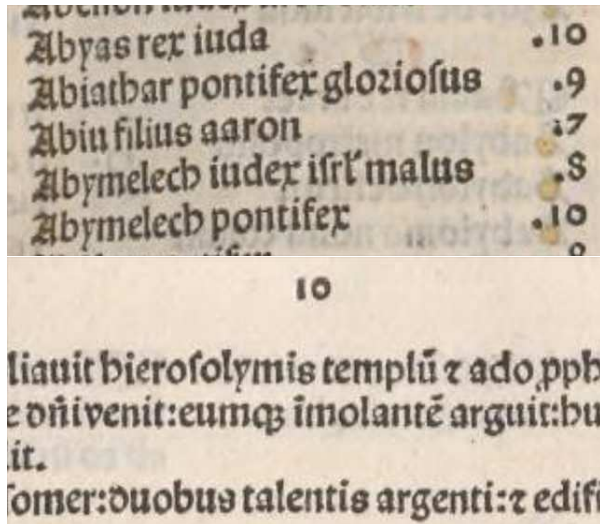 Abyas rex iuda .10
Abiathar pontifex glorioſus .9
Abiu filius aaron .7
Abymelech iudex iſrł malus .8
Abymelech pontifex .10
10
liauit hieroſolymis templū ⁊ ado
e dñi venit:eumqꝫ īmolantē arguit:hu
it.
ſomer:duobus talentis argenti:⁊ edifi